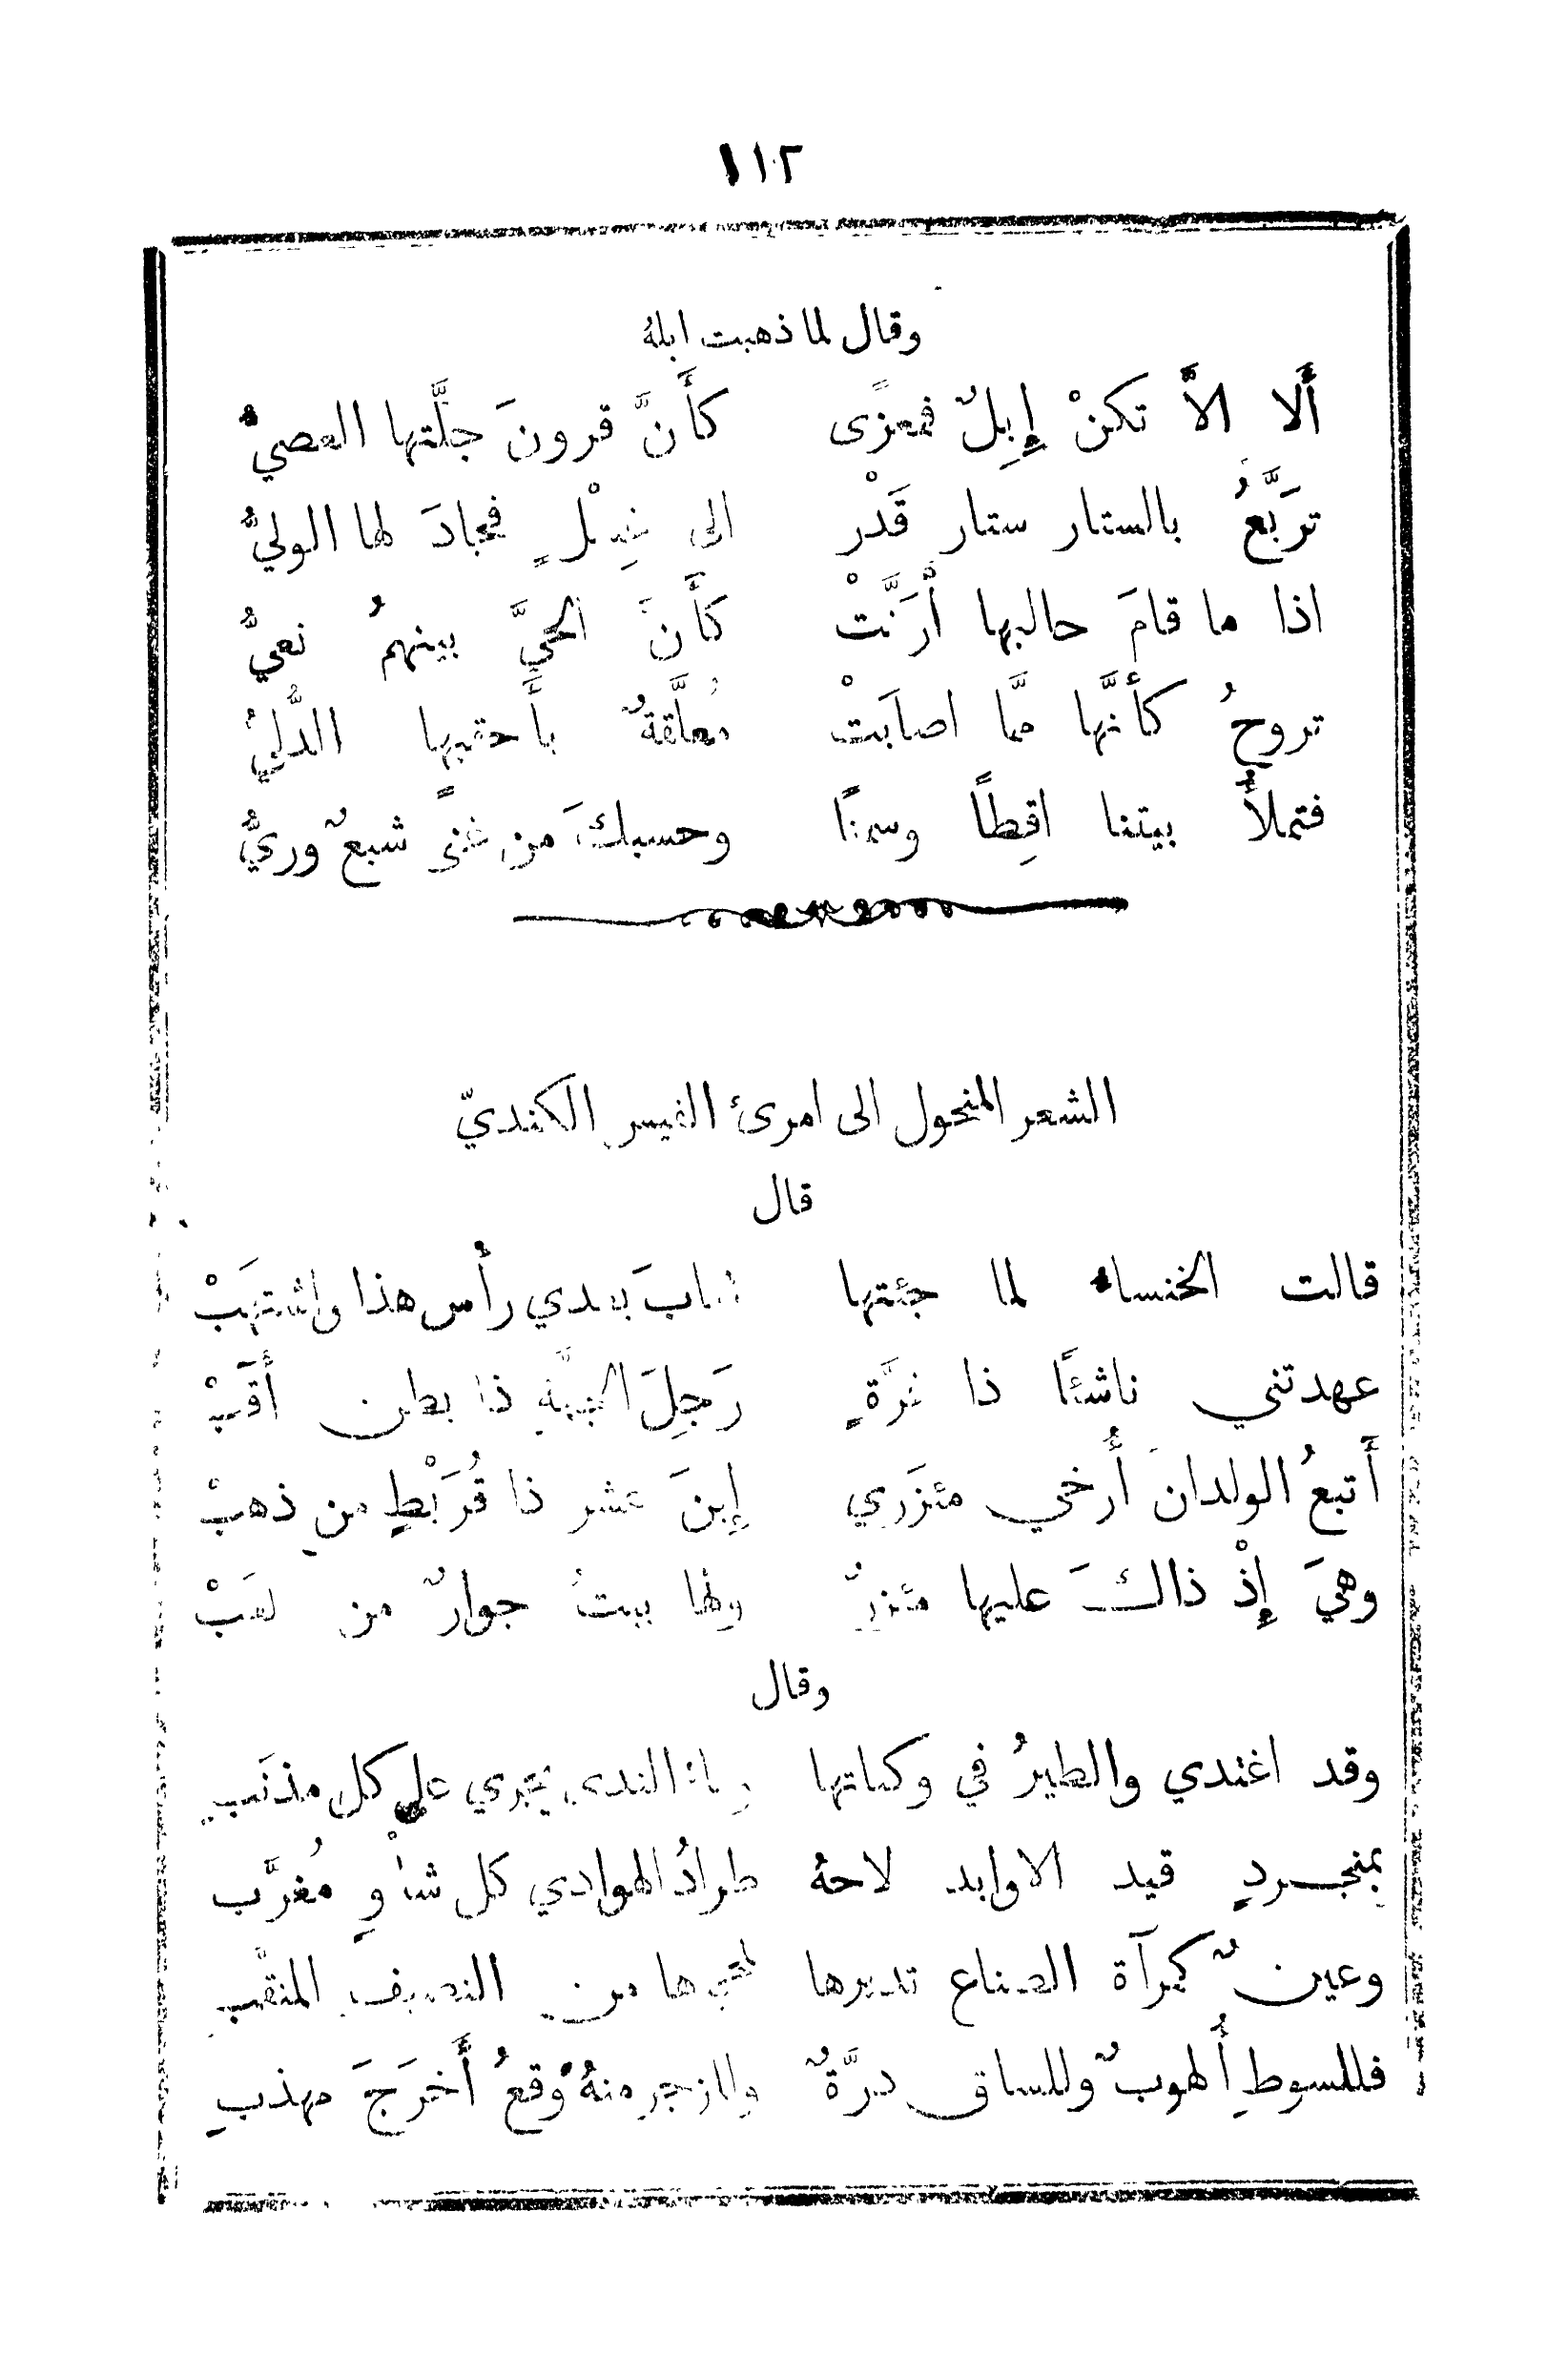 ١١٢
وقال لما ذهبت ابلهُ
أَلا الاَّ تكنْ إِبِلٌ فمعزًى كأَنَّ قرونَ جلَّتها العصيُّ
تربَّعُ بالستار ستار قَدْر الى غِسْلٍ فجادَ لها الوليُّ
اذا ما قامَ حالبها أَرَنَّتْ كأَنَّ الحيَّ بينهمُ نعيُّ
تروحُ كأَنَّها ممَّا اصابَتْ مُعلَّقةٌ بأَحقيها الدُّليُّ
فتملأُ بيتنا اقِطاً وسمنًا وحسبكَ من غنًى شبعٌ وريُّ
الشعر المنحول الى امرئ القيس الكنديّ
قال
قالت الخنساء لما جئتها شابَ بعدي رأس هذا واشتهَبْ
عهدتني ناشئًا ذا غرَّةٍ رَجِلَ الجمَّةِ ذا بطن أَقَبْ
أَتبعُ الولدانَ أُرخي مئزَري إِبنَ عشر ذا قُرَيْطٍ من ذهبْ
وهيَ إِذْ ذاكَ عليها مئزرٌ ولها بيتُ جوارٌ من لعَبْ
وقال
وقد اغتدي والطيرُ في وكناتها وماء الندى يجري على كل مذنَب
بمنجردٍ قيد الاوابد لاحهُ طرادُ الهوادي كل شأْوٍ مُغرَّب
وعينٌ كمرآة الصناع تديرها لمحجرها من النصيف المنقَّب
فللسوطِ أُلهوبٌ وللساق درَّةٌ وللزجر منهُ وقعُ أَخرَجَ مهذبِ